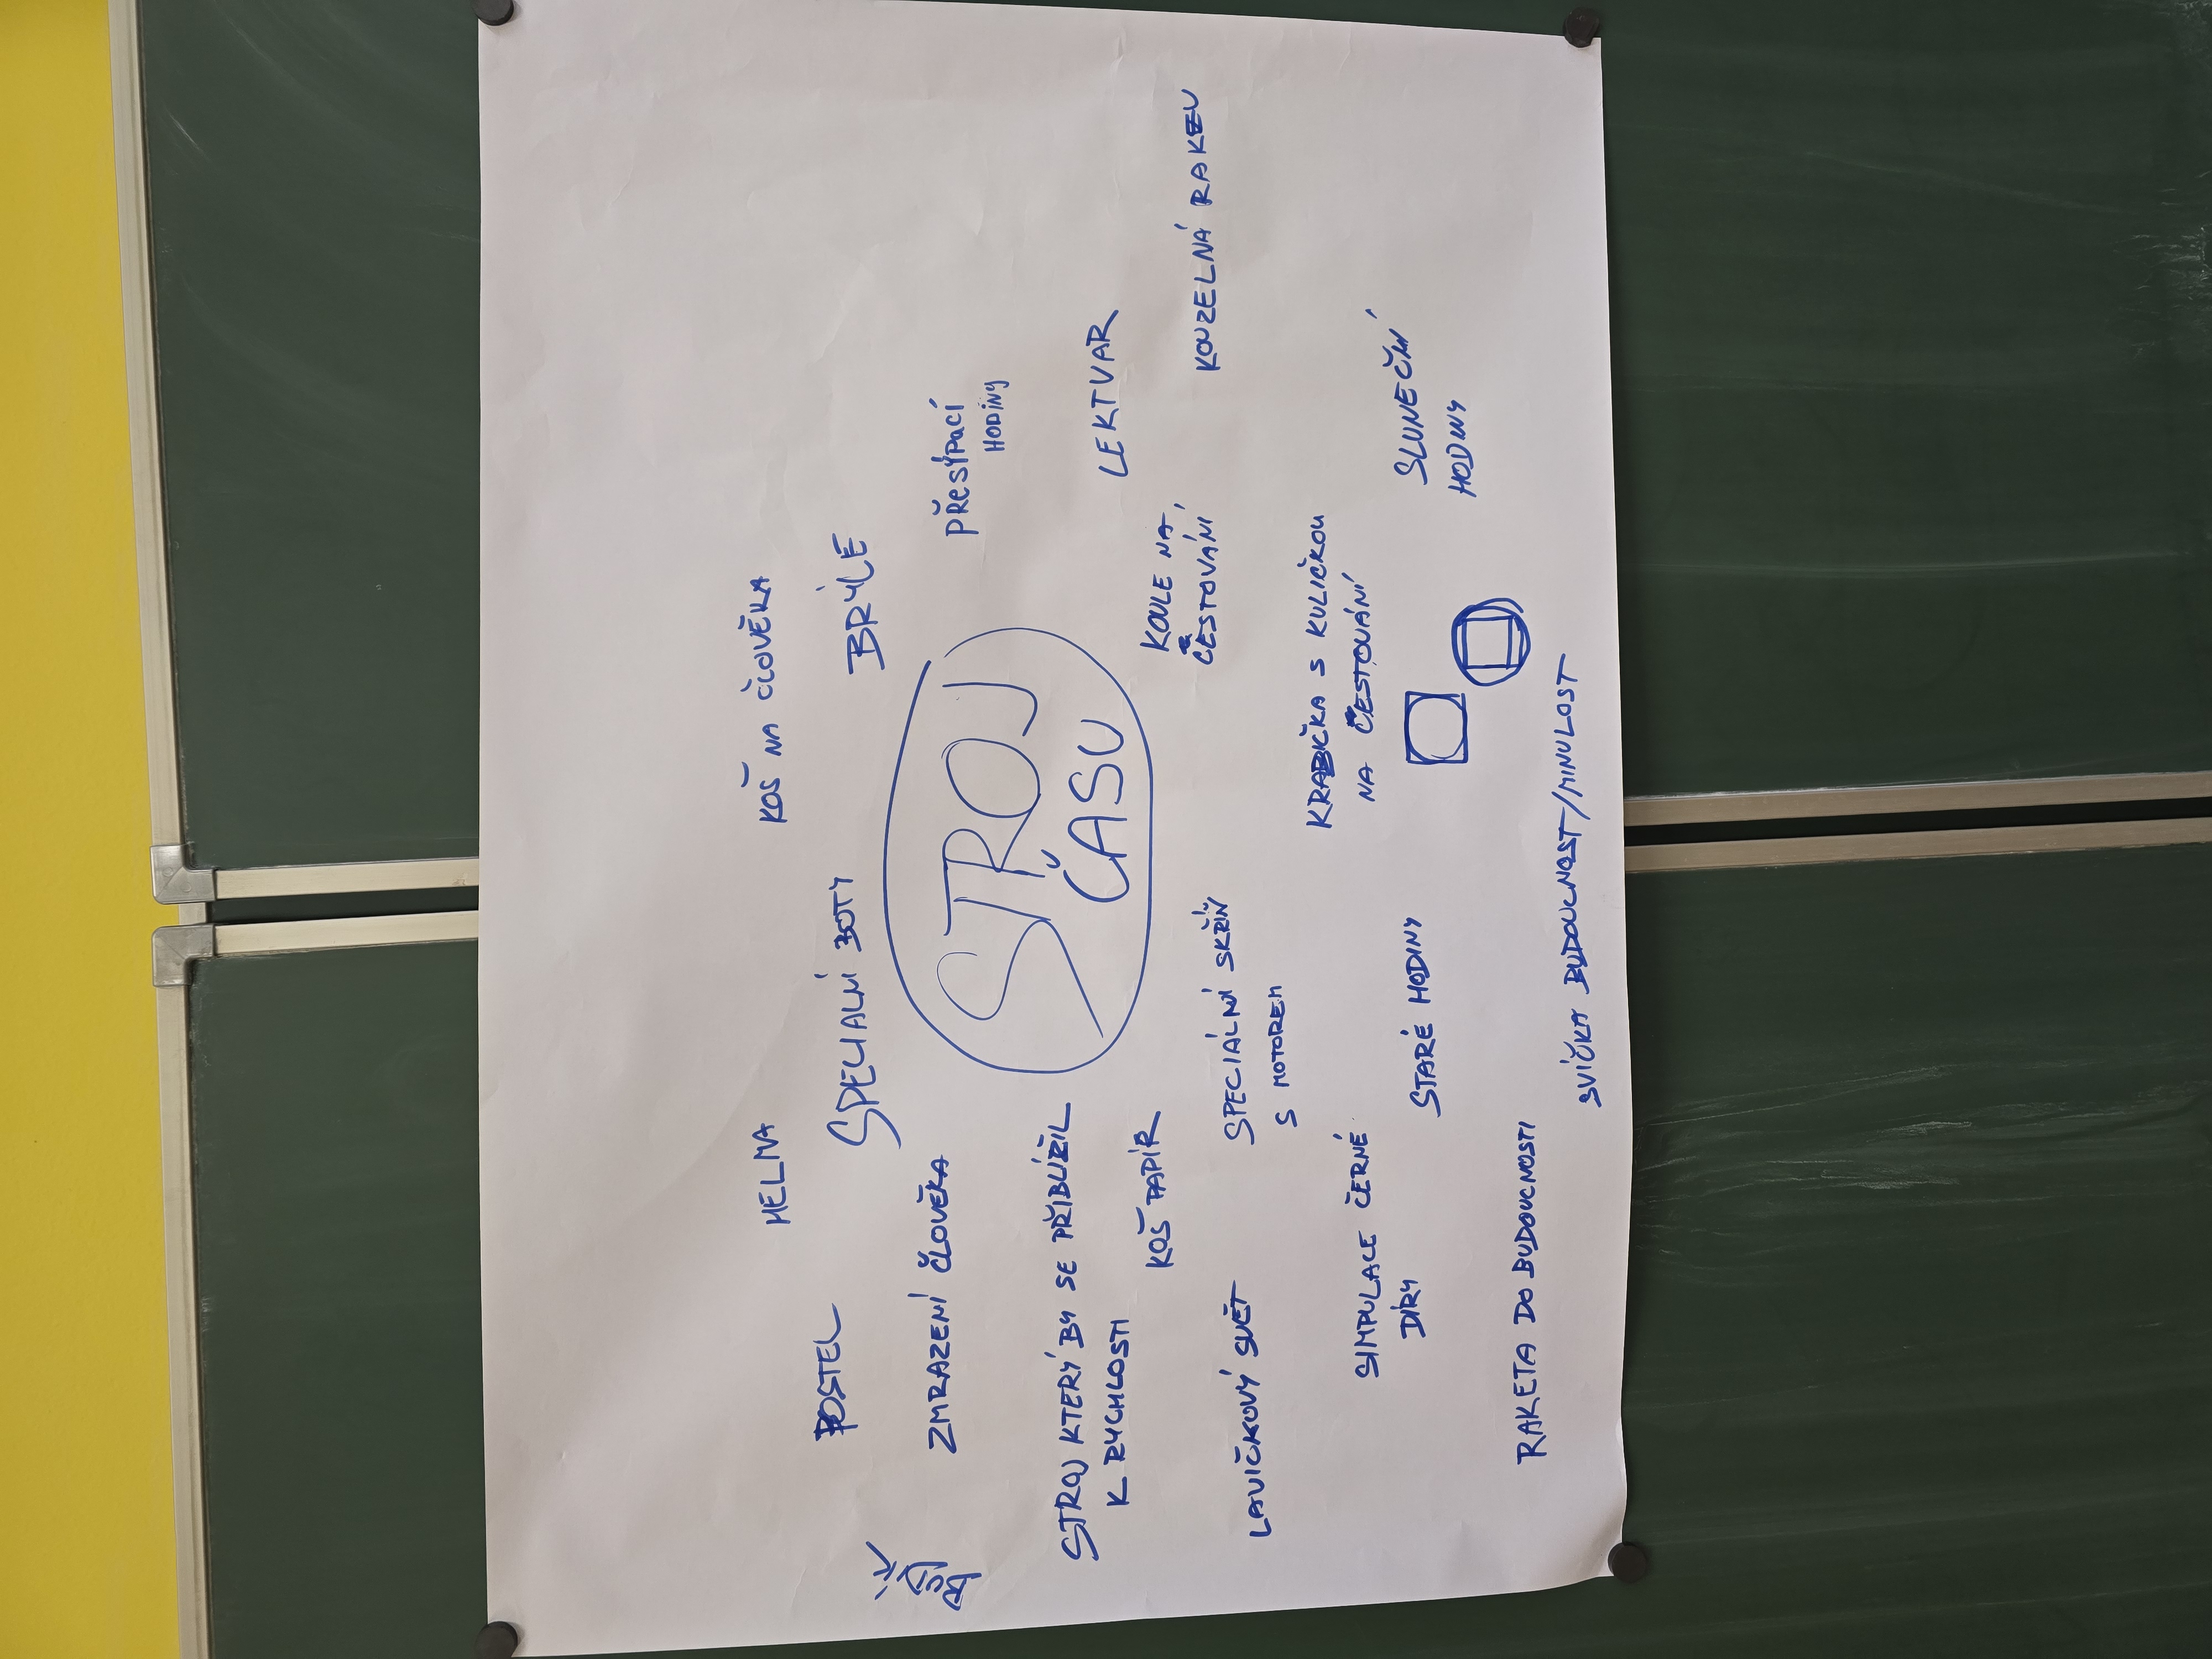 HELMA
KOŠ NA ČLOVĚKA
POSTEL
SPECIALNÍ BOTY
BRÝLE
ZMRAZENÍ ČLOVĚKA
PŘESÝPACÍ
HODINY
STROJ
ČASU
STROJ KTERÝ BY SE PŘIBLÍŽIL
K RYCHLOSTI
KOŠ PAPÍR
LEKTVAR
KOULE NA
CESTOVÁNÍ
KOUZELNÁ RAKEV
LAVIČKOVÝ SVĚT
SPECIÁLNÍ SKŘÍŇ
S MOTOREM
KRABIČKA S KULIČKOU
NA CESTOVÁNÍ
SIMPULACE ČERNÉ
DÍRY
STARÉ HODINY
SLUNEČNÍ
HODINY
RAKETA DO BUDOUCNOSTI
SVÍČKA BUDOUCNOST/MINULOST